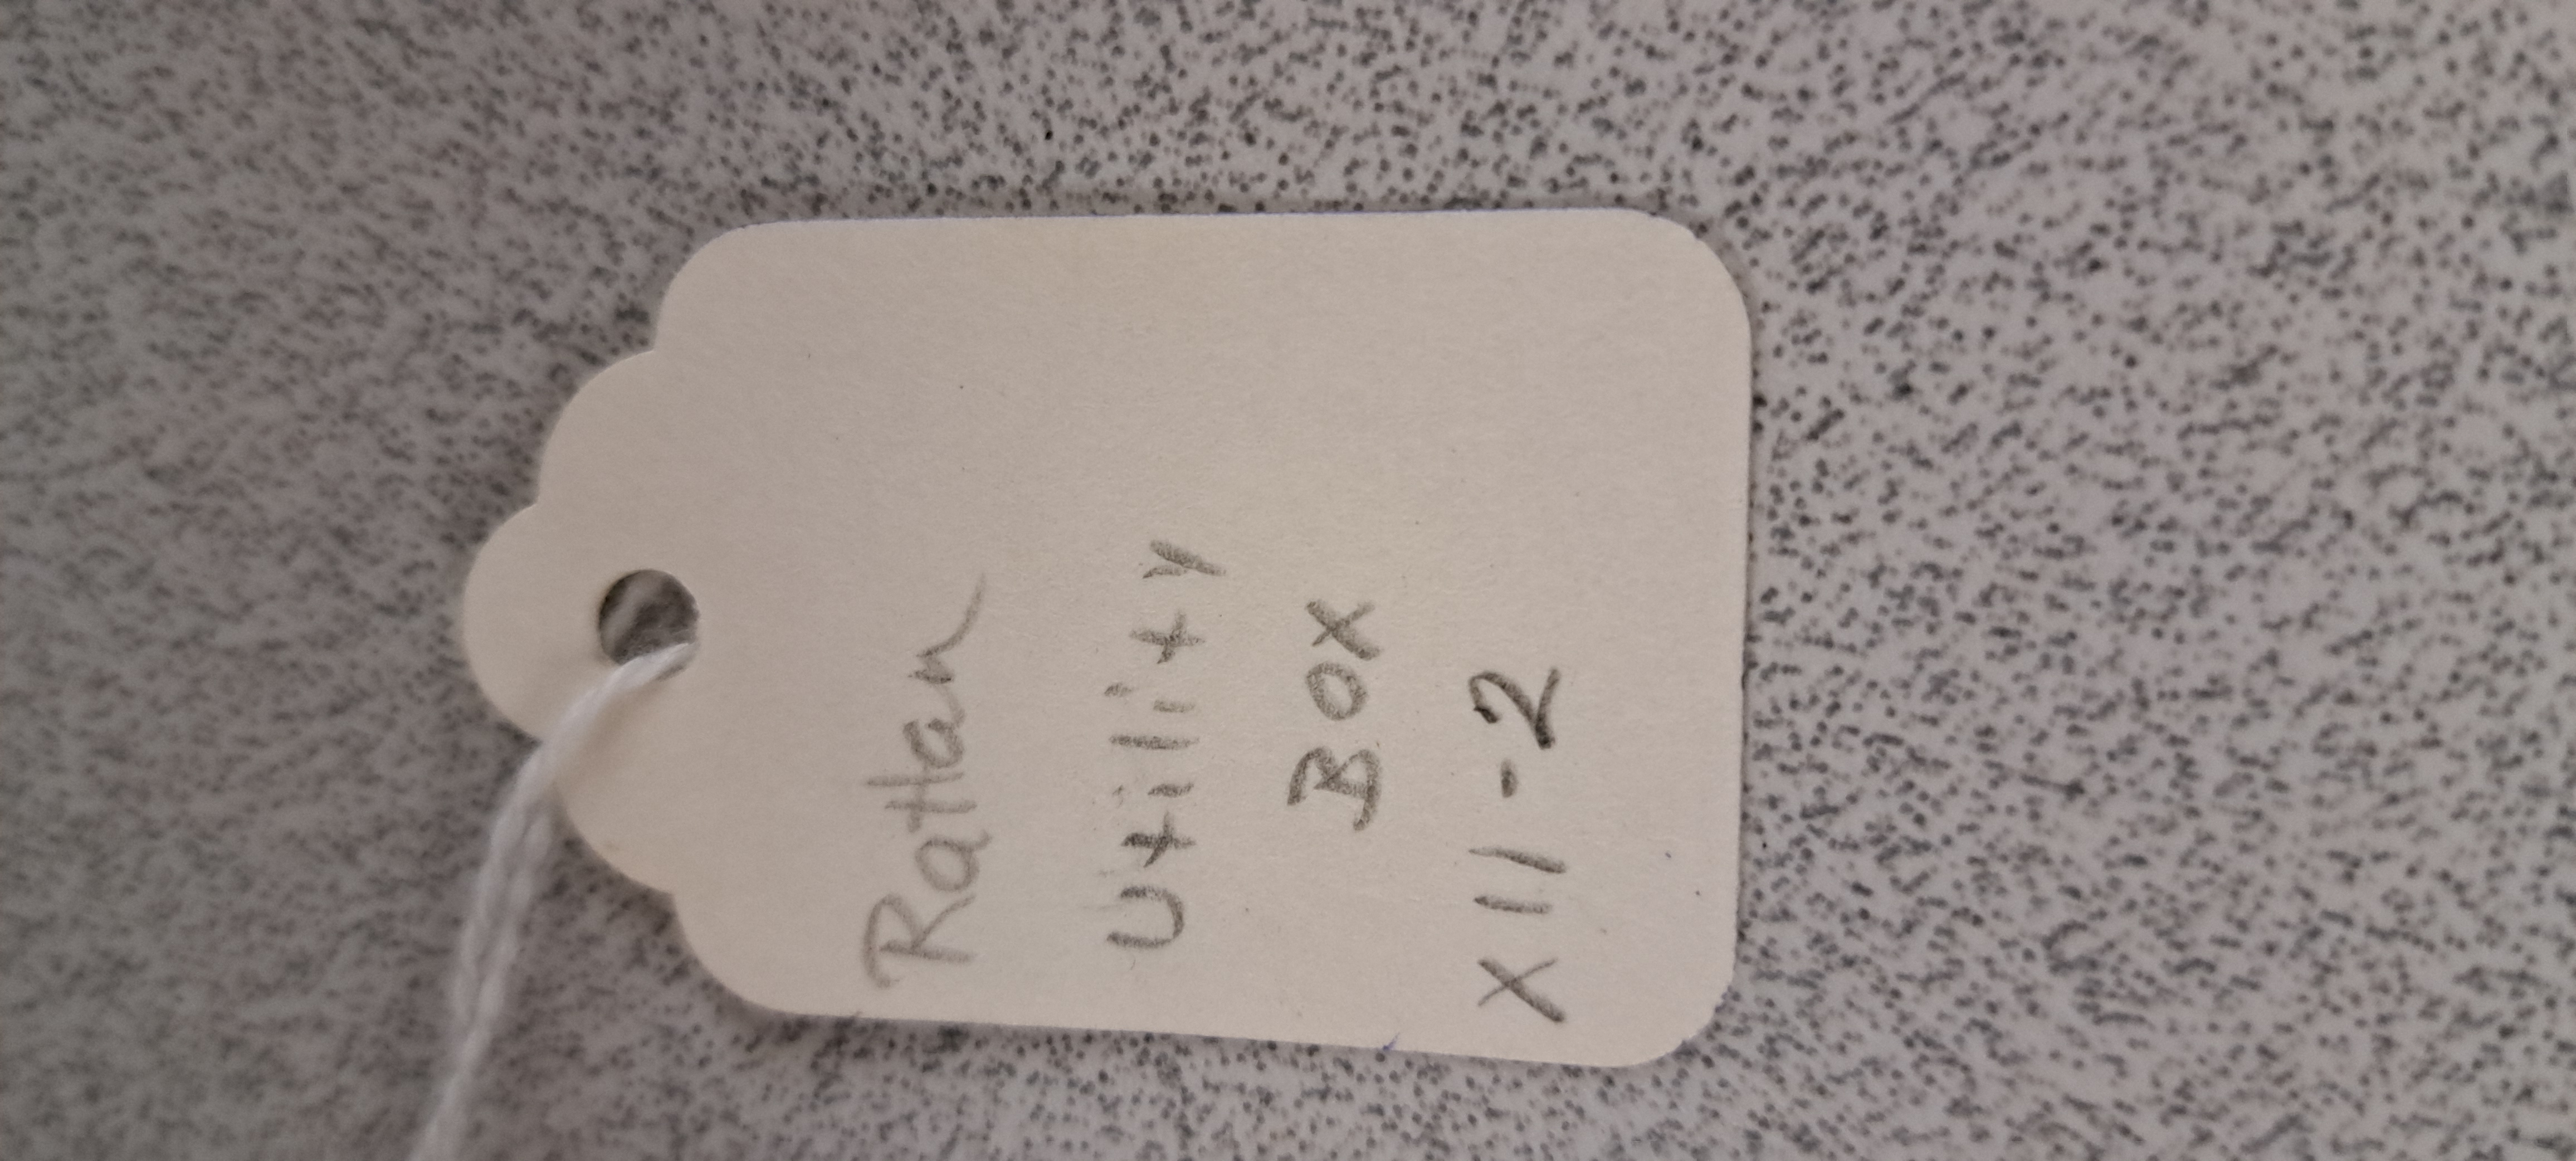 Rattan
Utility
BOX
X11-2